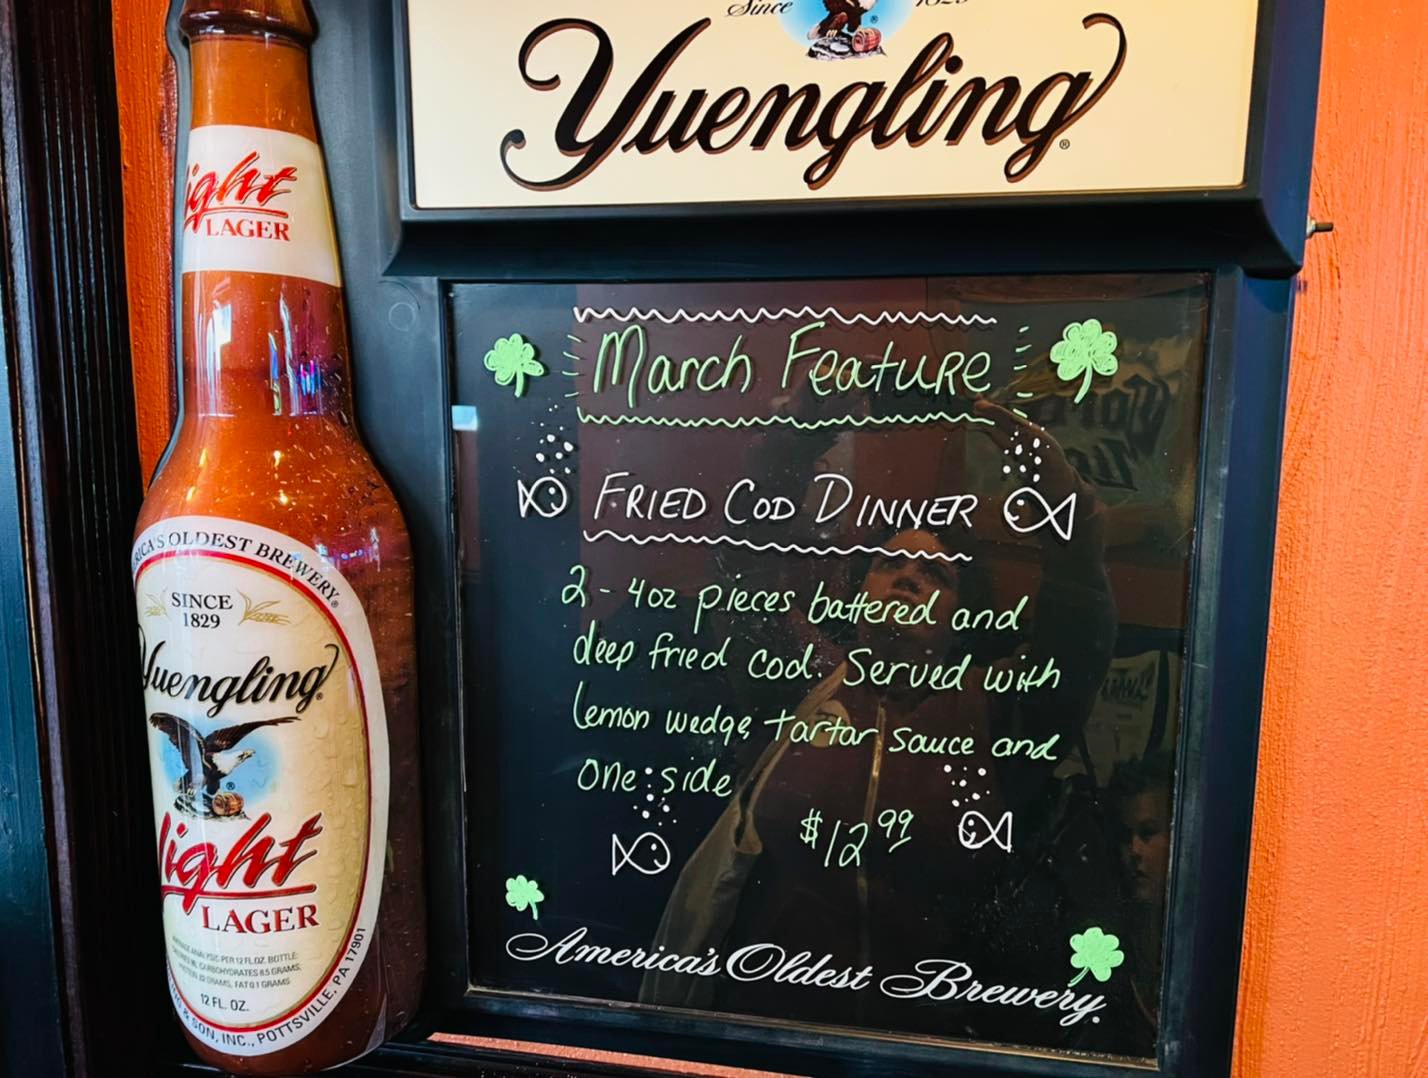 Since 1829
Yuengling®
ight
LAGER
AMERICA'S OLDEST BREWERY®
SINCE
1829
Yuengling®
light
LAGER
PER 12 FL. OZ. BOTTLE:
CARBOHYDRATES 8.5 GRAMS,
GRAMS, FAT 0.1 GRAMS
12 FL. OZ.
& SON, INC., POTTSVILLE, PA 17901
March Feature
FRIED COD DINNER
2 - 4oz pieces battered and
deep fried cod. Served with
lemon wedge, tartar sauce and
one side
$12.99
America's Oldest Brewery.